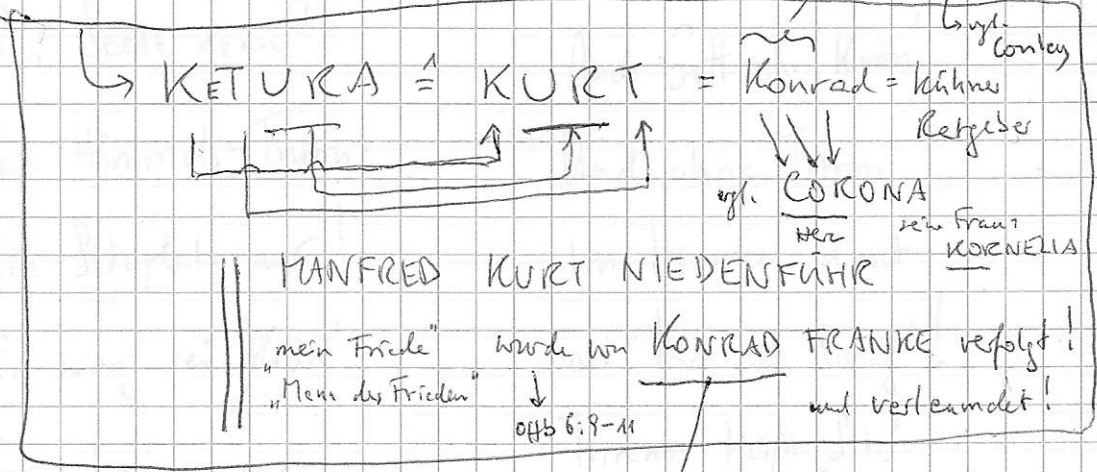 ↳ vgl. Conley
↳ KETURA ≙ KURT = Konrad = kühner
Ratgeber
vgl. CORONA
Herz
seine Frau:
KORNELIA
MANFRED KURT NIEDENFÜHR
"mein Friede" wurde von KONRAD FRANKE verfolgt!
"Mann des Friedens" und verleumdet!
Offb 6:9-11